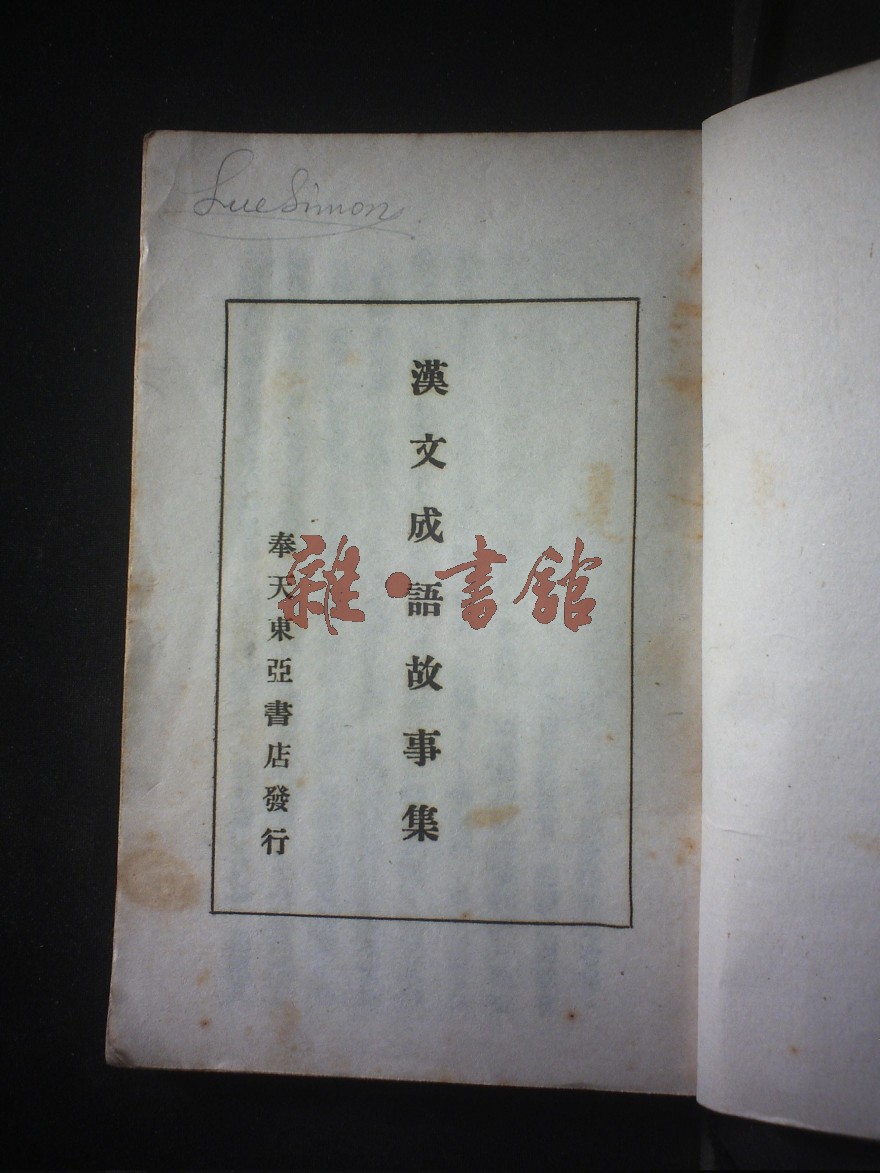 Lue Simon
漢文成語故事集
奉天東亞書店發行
雜·書館